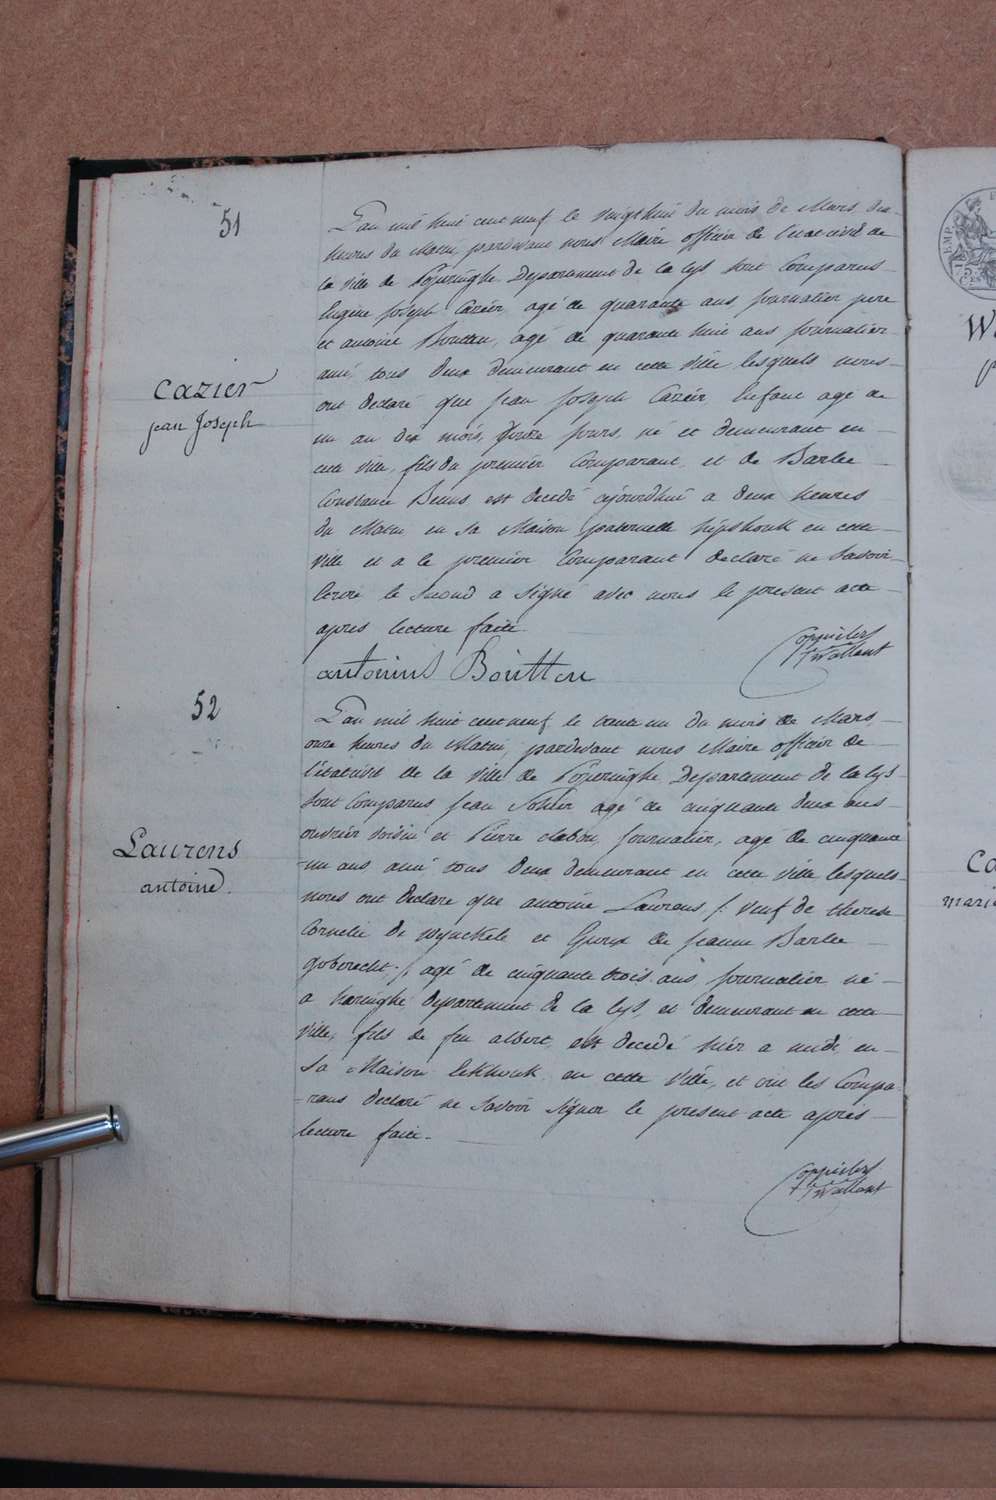 51
L'an mil huit cent neuf le vingt huit du mois de Mars dix
heures du Matin, pardevant nous Maire officier de l'etat civil de
la ville de Poperinghe Departement de la Lys sont Comparus
Eugene Joseph Cazier agé de quarante ans, journalier pere
et antoine Boutten, agé de quarante huit ans journalier
ami, tous deux demeurant en cette ville lesquels nous
ont declaré que jean joseph Cazier, Enfant agé de
un an dix mois, jours, né et demeurant en
cette ville, fils du premier Comparant, et de Barbe
Constance est decedé aujourdhui a deux heures
du Matin en sa Maison paternelle en cette
ville et a le premier Comparant declaré ne savoir
Ecrire le second a signé avec nous le present acte
apres lecture faite
Cazier
jean Joseph
antonius Boutten
52
L'an mil huit cent neuf le trente un du mois de Mars
onze heures du Matin, pardevant nous Maire officier de
l'état civil de la ville de Poperinghe Departement de la Lys
sont Comparus jean agé de cinquante deux ans
ouvrier voisin et Pierre journalier, agé de cinquante
un ans, ami tous deux demeurant en cette ville lesquels
nous ont declaré que antoine Laurens /: veuf de therese
Cornelie de Wynckele et Epoux de jeanne Barbe
Goberecht :/ agé de cinquante trois ans journalier né
a haringhe, departement de la Lys, et demeurant en cette
ville, fils de feu albert, est decedé hier a midi en
sa Maison Ekhouk en cette ville, et ont les Compa-
-rans declaré ne savoir signer le present acte après
lecture faite.
Laurens
antoine.